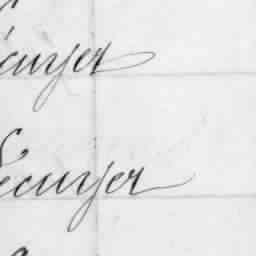 écuyer
Lécuyer